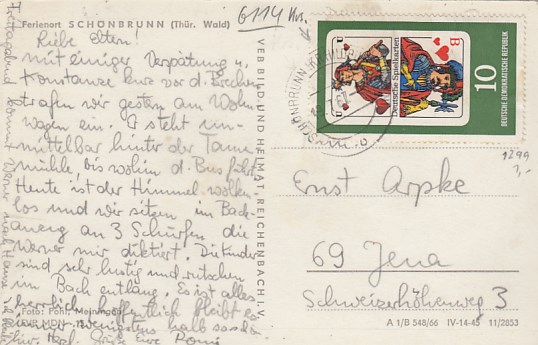 Ferienort SCHÖNBRUNN (Thür. Wald)
6114 Krs.
Liebe Eltern!
mit einiger Verspätung u.
Konstanze kurz vor d. Brechen
trafen wir gestern am Wohn
wagen ein. Er steht un-
mittelbar hinter der Tanne
mühle, bis wohin d. Bus fährt.
Heute ist der Himmel wolken
los und wir sitzen im Bade-
anzug an 3 Schürfen die
Werner mir diktiert. Die Kinder
sind sehr lustig und rutschen
im Bach entlang. Es ist alles
herrlich hoffentlich bleibt es
wenigstens halb so
hier. Herzl. Grüße Eure
Freitagabend kommt Werner nach Hause
Foto: Pohl, Meiningen
VEB BILD UND HEIMAT REICHENBACH I. V.
SCHÖNBRUNN
Deutsche Spielkarten
U
B
10
DEUTSCHE DEMOKRATISCHE REPUBLIK
1299
Ernst Arpke
69 Jena
Schweizerhöhenweg 3
A 1/B 548/66 IV-14-45 11/2853